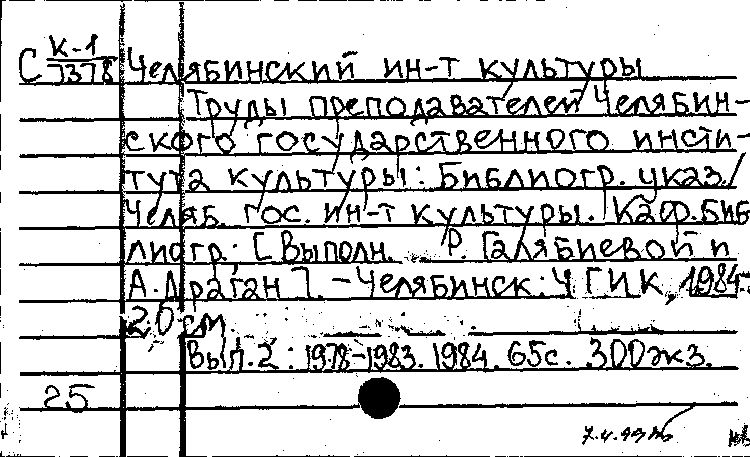 С К-1
7378 Челябинский ин-т культуры
Труды преподавателей Челябин-
ского государственного инсти-
тута культуры: Библиогр. указ./
Челяб. гос. ин-т культуры. Каф. биб-
лиогр.; [Выполн. Р. Галябиевой и
А. Драган]. – Челябинск: ЧГИК, 1984.
20 см
Вып. 2: 1978-1983. 1984. 65с. 300экз.
25